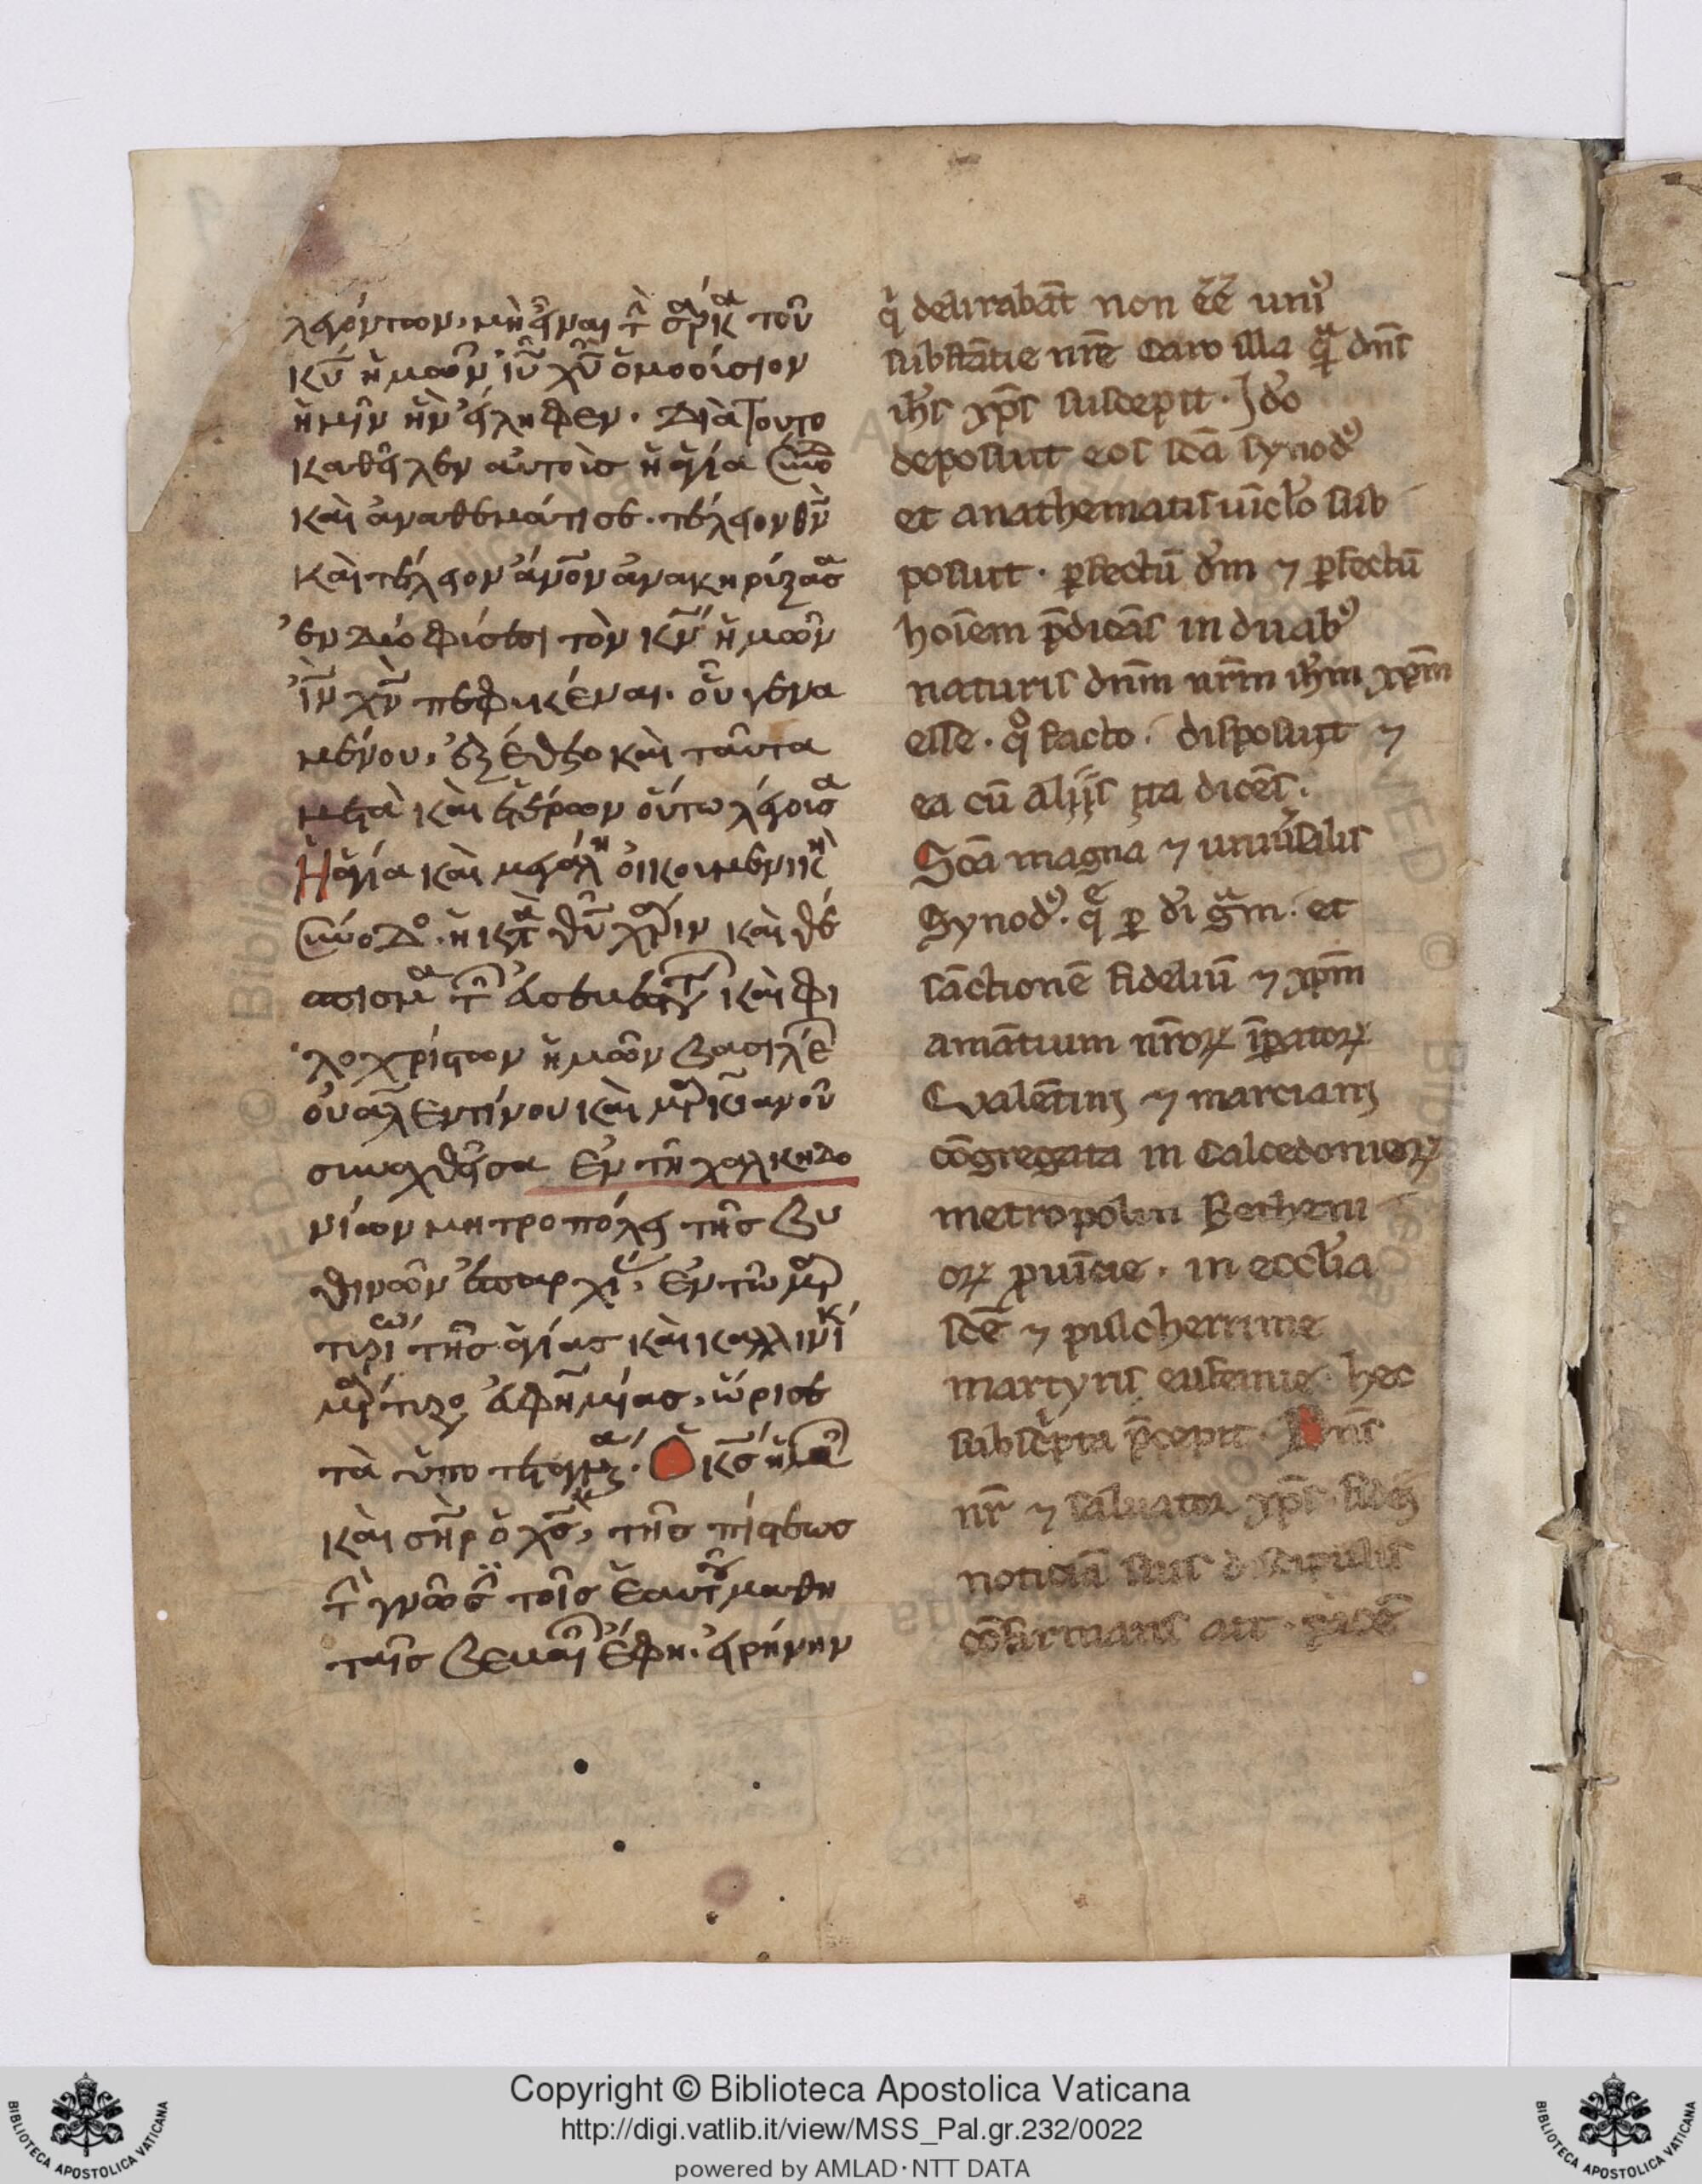 λεγόντων, μὴ εἶναι τ̂ σάρκα τοῦ
κῡ ἡμῶν ἰῡ χῡ ὁμοούσιον
ἡμῖν ἣν εἴληφεν. Διὰ τουτο
καθεῖλεν αὐτοὺσ ἡ ἁγία συνο
καὶ ἀναθεμάτισε. τέλειον θν̄
καὶ τέλειον ἄνο̄ν ἀνακηρύξασα
ἐν δύο φύσεσι τὸν κν̄ ἡμῶν
ἰν̄ χν̄ πεφυκέναι. οὗ γενα
μένου, ἐξέθετο καὶ ταῦτα
μετὰ καὶ ἑτέρων οὕτω λέγουσα
Ἡ ἁγία καὶ μεγάλη οἰκουμενικὴ
συνοδο. ἡ κατὰ θῡ χάριν καὶ θέ
σπισμα τ̂ εὐσεβεστάτ καὶ φι
λοχρίστων ἡμῶν βασιλέ
οὐαλεντίνου καὶ μαρκιανοῦ
συναχθεῖσα ἐν τῆ χαλκηδο
νίων μητροπόλει τῆσ βυ
θηνῶν ἐπαρχί, ἐν τῶ μαρ
τυρίω τῆσ ἁγίασ καὶ καλλινίκ
μάρτυρο εὐφημίασ, ὥρισε
τὰ ὑποτεταγμένα. Ὁ κσ̄ ἡμῶ
καὶ σηρ̄ ὁ χσ̄, τῆσ πίστεωσ
τ̂ γνῶσ τοῖσ ἑαυτοῦ μαθη
ταῖσ βεβαιῶ ἔφη. εἰρήνην
q̇ delirabāt non eē̄ uniꝰ
substātie nr̄e Caro illa quā dn̄s
ih̄s xp̄s suscepit. Iđo
deposuit eos sc̄a synodꝰ
et anathematis uīcl̄o sub
posuit. ꝑfectū đm ⁊ ꝑfectū
hoīem p̄dicās in duabꝰ
naturis dn̄m nr̄m ih̄m xp̄m
esse. q̊ facto. disposuit ⁊
ea cū alijs ita dicēs.
Sc̄a magna ⁊ uniūsalis
Synodꝰ. q̄ ꝑ đi gr̄am. et
sāctionē fidelium̄ ⁊ xp̄m
amātium nr̄oꝝ īꝑatoꝝ
Valētinj ⁊ marcianj
cōgregata in Calcedonieoꝝ
metropolim Betheni
oꝝ ꝓuīcie. in eccl̄ia
sc̄e ⁊ pulcherrime
martyris eufemie. hec
subsc̄pta p̄cepit. Dn̄s
nr̄ ⁊ saluator xp̄s. fidei
noticiā suis discipulis
cōfirmans ait. pacē
Copyright © Biblioteca Apostolica Vaticana
http://digi.vatlib.it/view/MSS_Pal.gr.232/0022
powered by AMLAD·NTT DATA
BIBLIOTECA APOSTOLICA VATICANA
BIBLIOTECA APOSTOLICA VATICANA